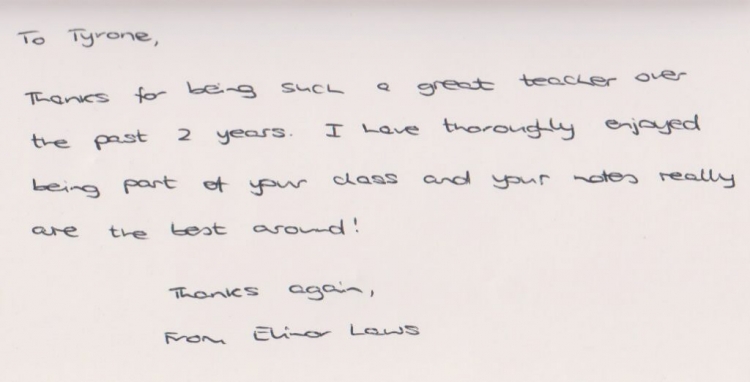 To Tyrone,
Thanks for being such a great teacher over
the past 2 years. I have thoroughly enjoyed
being part of your class and your notes really
are the best around!
Thanks again,
From Elinor Laws